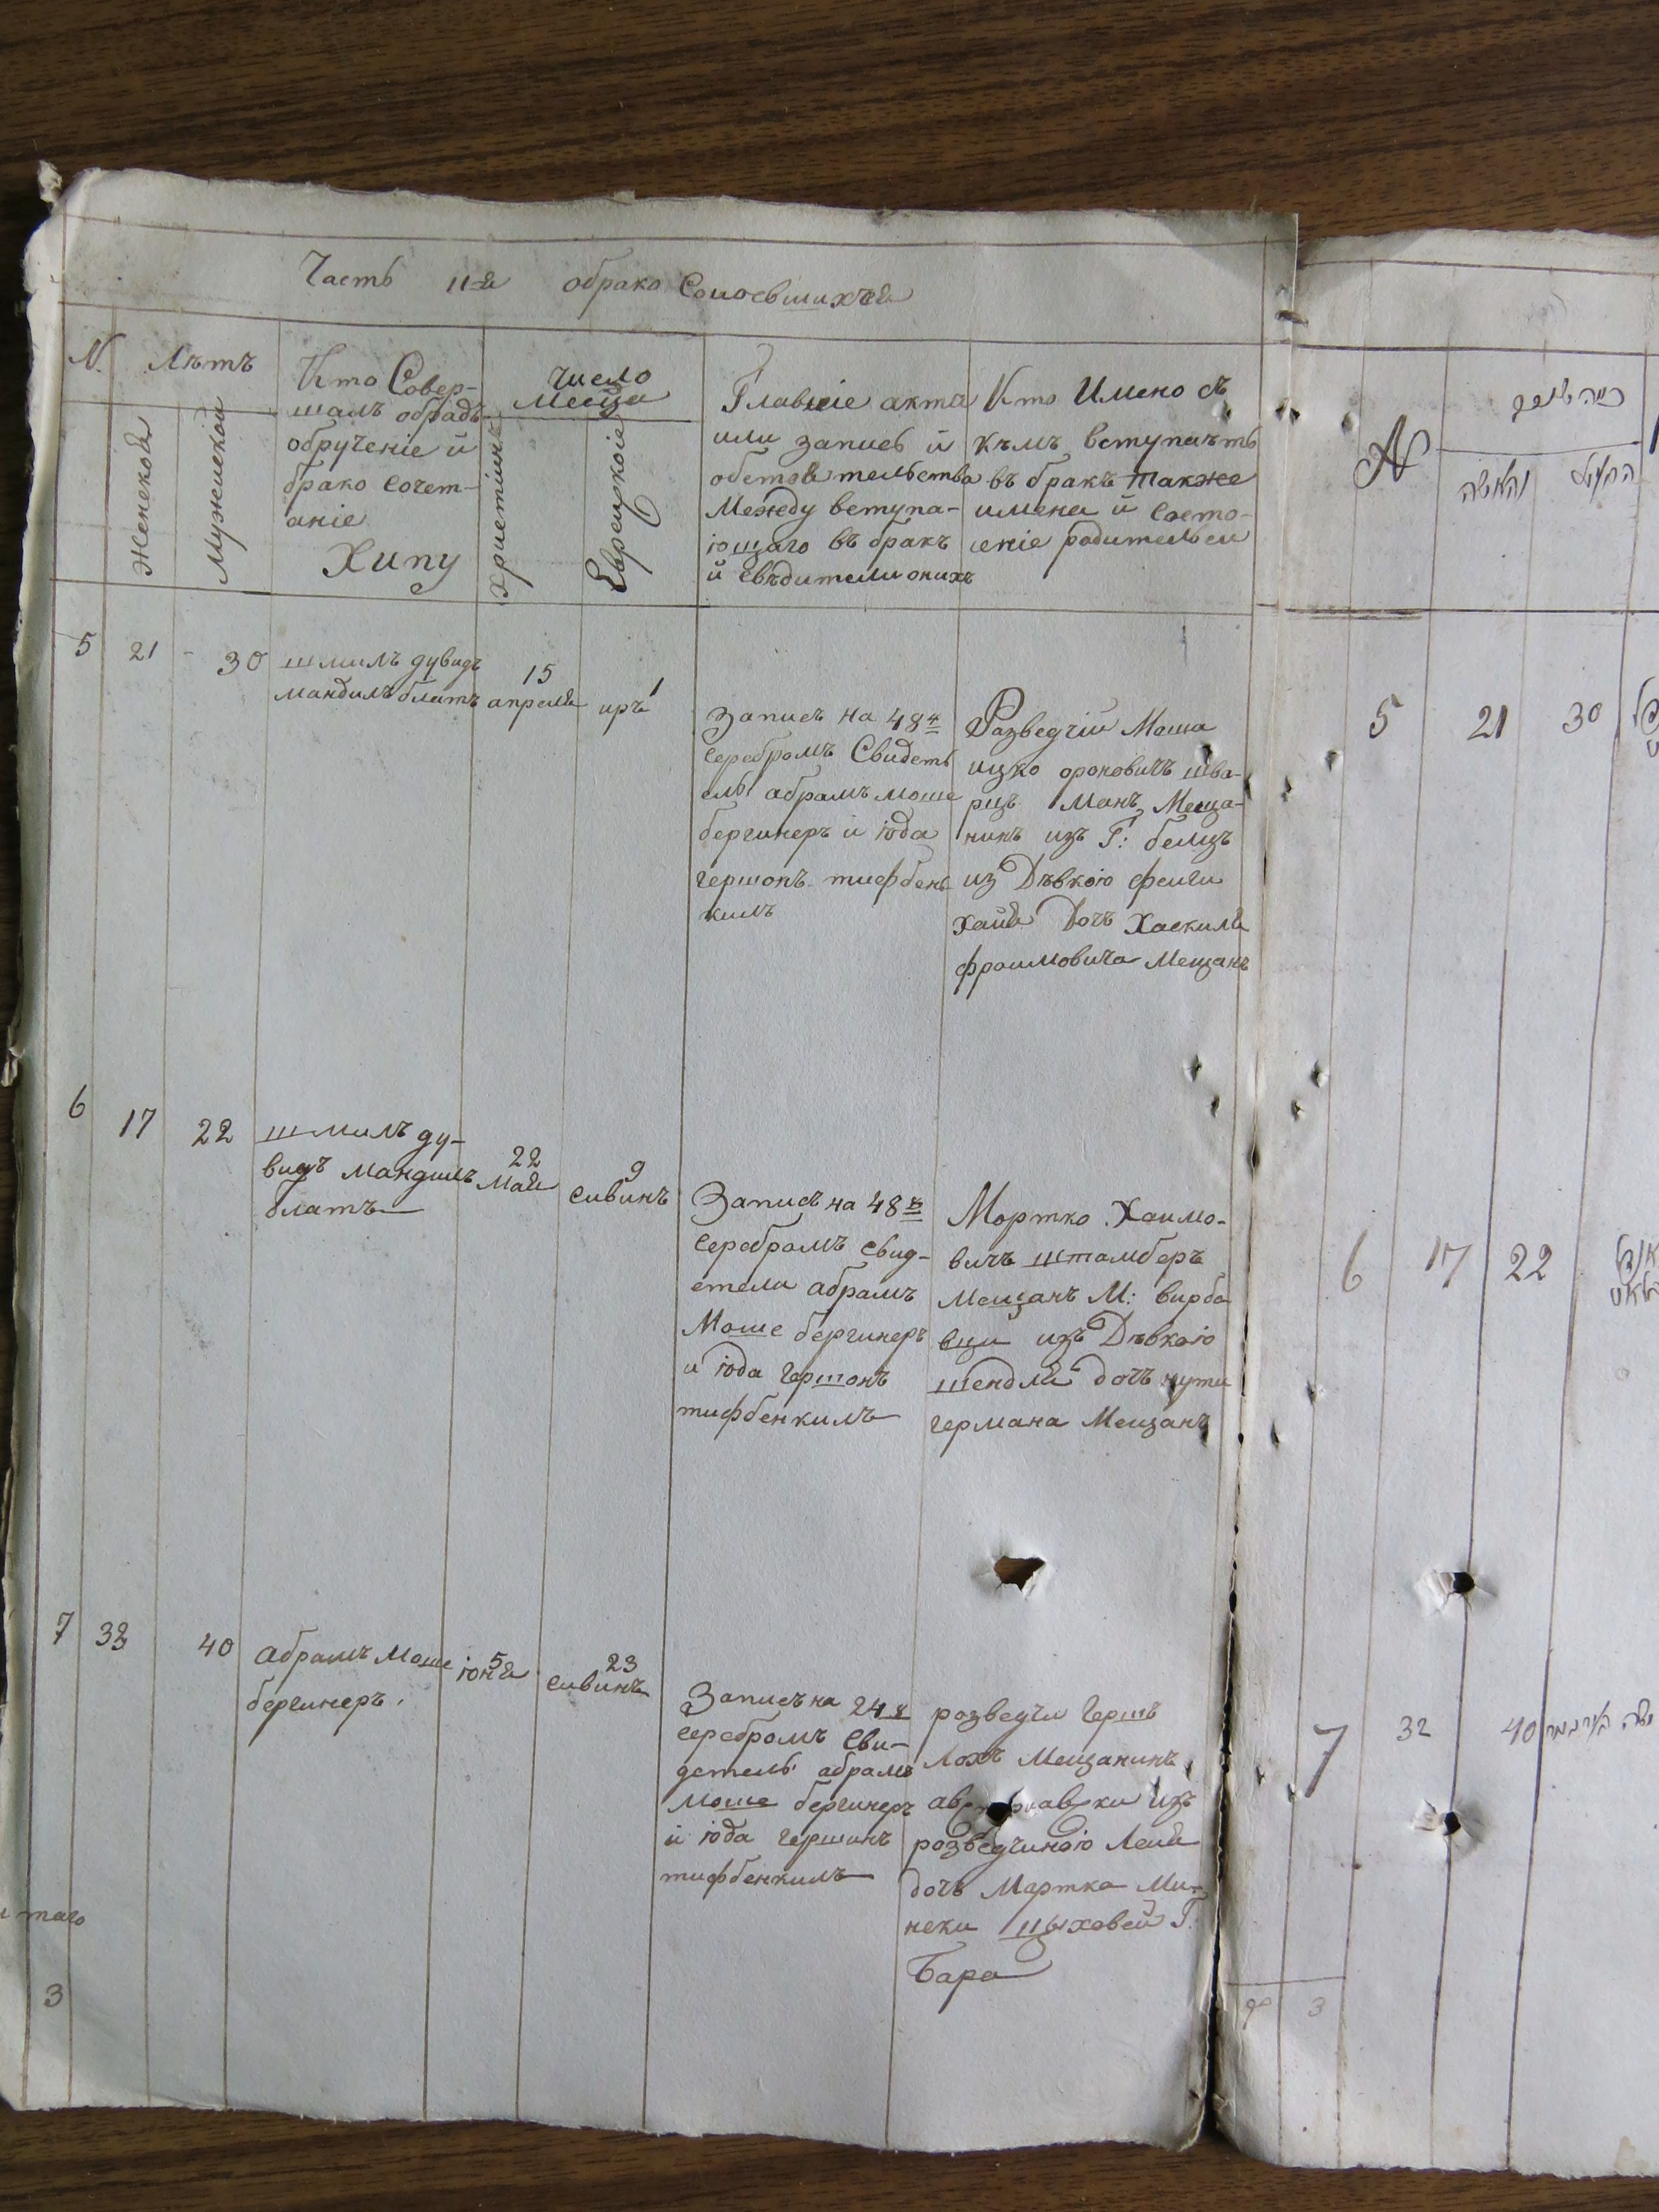 Часть II-я обрако Сочоевшихъся
N.
Лѣтъ
Женской
Мужиской
Кто Совер-
шалъ обрадъ
обрученіе й
брако Сочет-
аніе
Хипу
Число
Месца
Христіянскіе
Еврейскоіе
Главніе актъ
или записъ й
обстоятельства
Между вступа-
ющаго въ бракъ
й свѣдители онихъ
Кто Имено съ
кѣмъ вступаетъ
въ бракъ также
имена й Состо-
яніе родителей
5
21
30
шмилъ дувидъ
мандилъ блатъ
15
апреля
1
иръ
Записъ на 48
Серебромъ Свидетъ
елы абрамъ моше
бергинеръ й іода
гершонъ тифбен-
килъ
Разведчій Моша
ицко ороновичъ шва-
рцъ Манъ Меща-
нинъ изъ Г: белцъ
из Дѣвкою фейги
хайя Дочъ Хаскиля
фроимовича Мещанъ
6
17
22
шмилъ ду-
видъ мандилъ
блатъ
22
Мая
9
сивинъ
Записъ на 48
Серебромъ свид-
етели абрамъ
Моше бергинеръ
и іода Гершонъ
тифбенкилъ
Мортко Хаимо-
вичъ штамберъ
Мещанъ М: вирбо
вци изъ Дѣвкою
шендля дочъ нути
германа Мещанъ
7
32
40
абрамъ Моше
бергинеръ.
5
іюня
23
сивинъ
Записъ на 24
Серебромъ Сви-
детель абрамъ
Моше бергинеръ
й іода гершинъ
тифбенкилъ
розведчи Гершъ
Лохъ Мещанинъ
изъ
розведчиною Лейя
дочъ Мортка Ми-
неки Г.
Бара
3
N
5
21
30
6
17
22
7
32
40
3